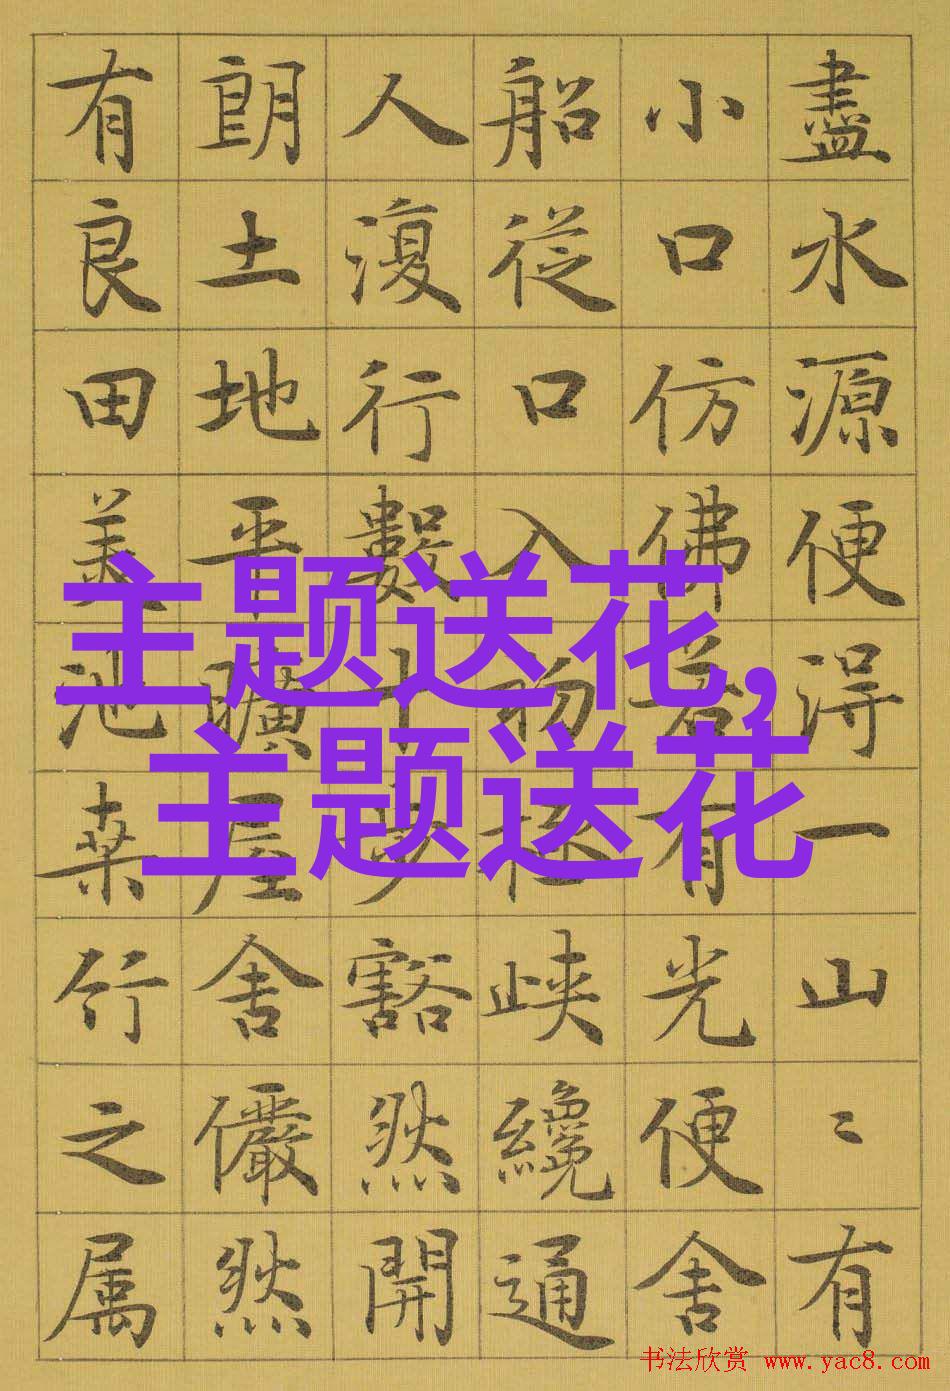 盡水源便淂一山〻有
小口仿佛若有光便舍
船從口入初極峽纔通
人復行數十步豁然開
朗土地平曠屋舍儼然
有良田美池桑竹之属
主题送花,
主题送花
书法欣赏 www.yac8.com